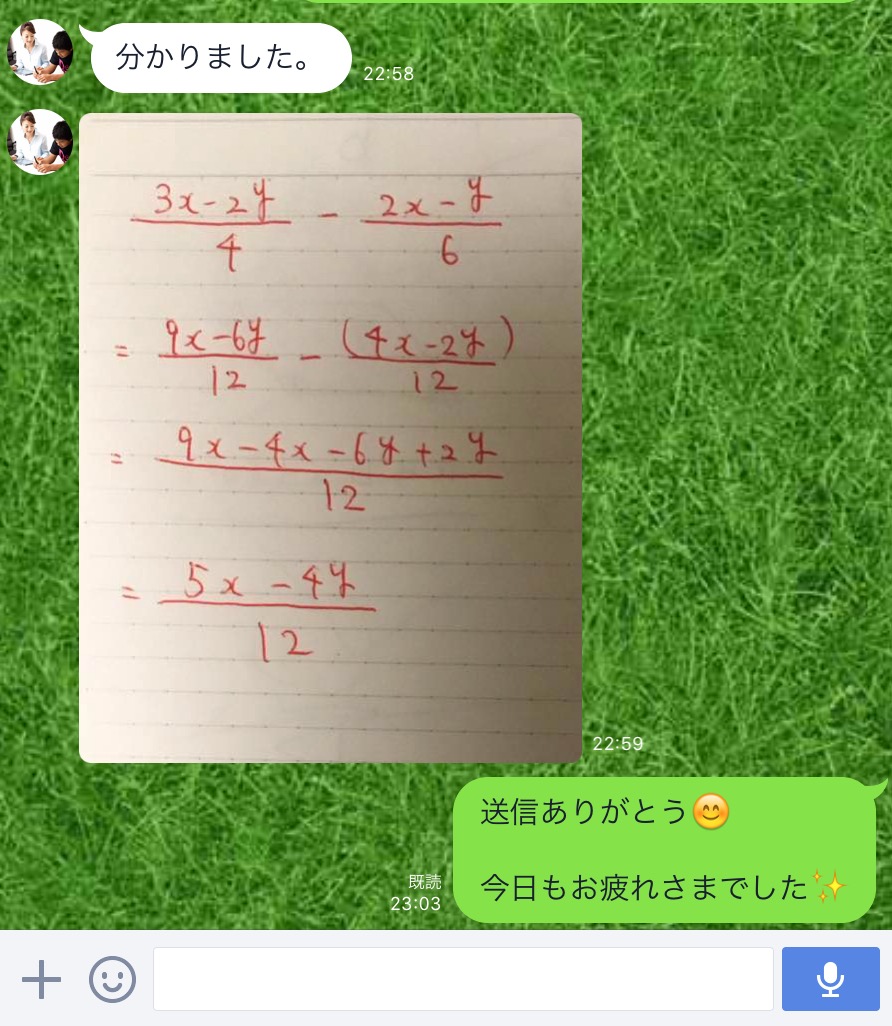 分かりました。
22:58
3x-2y/4 - 2x-y/6
= 9x-6y/12 - (4x-2y)/12
= 9x-4x-6y+2y/12
= 5x-4y/12
22:59
送信ありがとう😊
今日もお疲れさまでした✨
既読
23:03